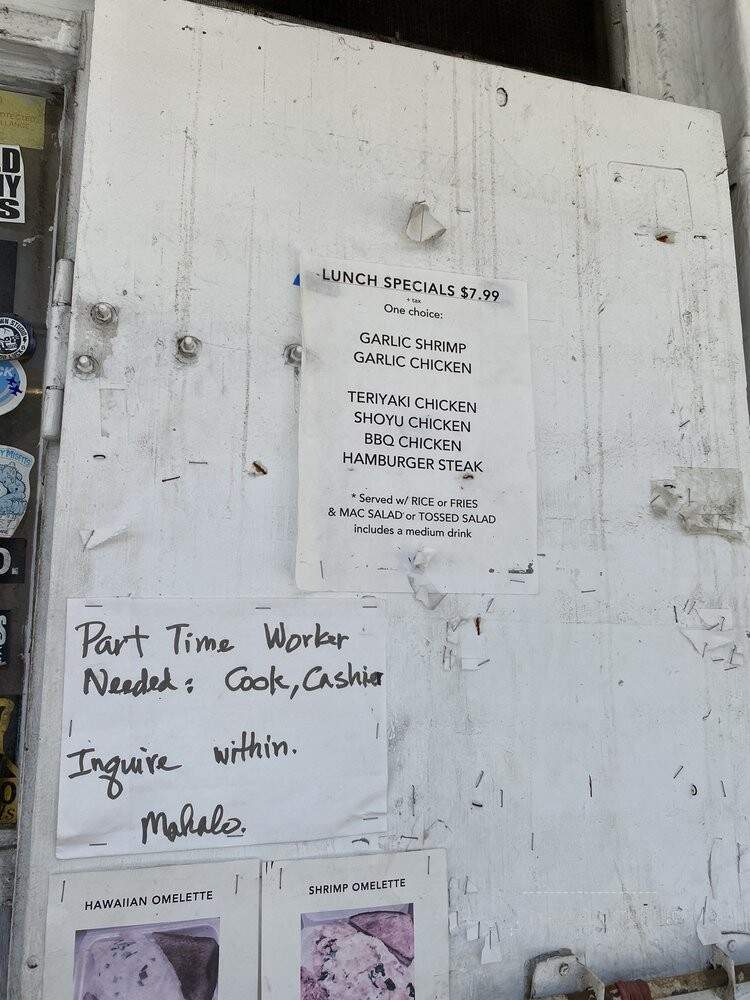 LUNCH SPECIALS $7.99
+ tax
One choice:
GARLIC SHRIMP
GARLIC CHICKEN
TERIYAKI CHICKEN
SHOYU CHICKEN
BBQ CHICKEN
HAMBURGER STEAK
* Served w/ RICE or FRIES
& MAC SALAD or TOSSED SALAD
includes a medium drink
Part Time Worker
Needed: Cook, Cashier
Inquire within.
Mahalo.
HAWAIIAN OMELETTE
SHRIMP OMELETTE